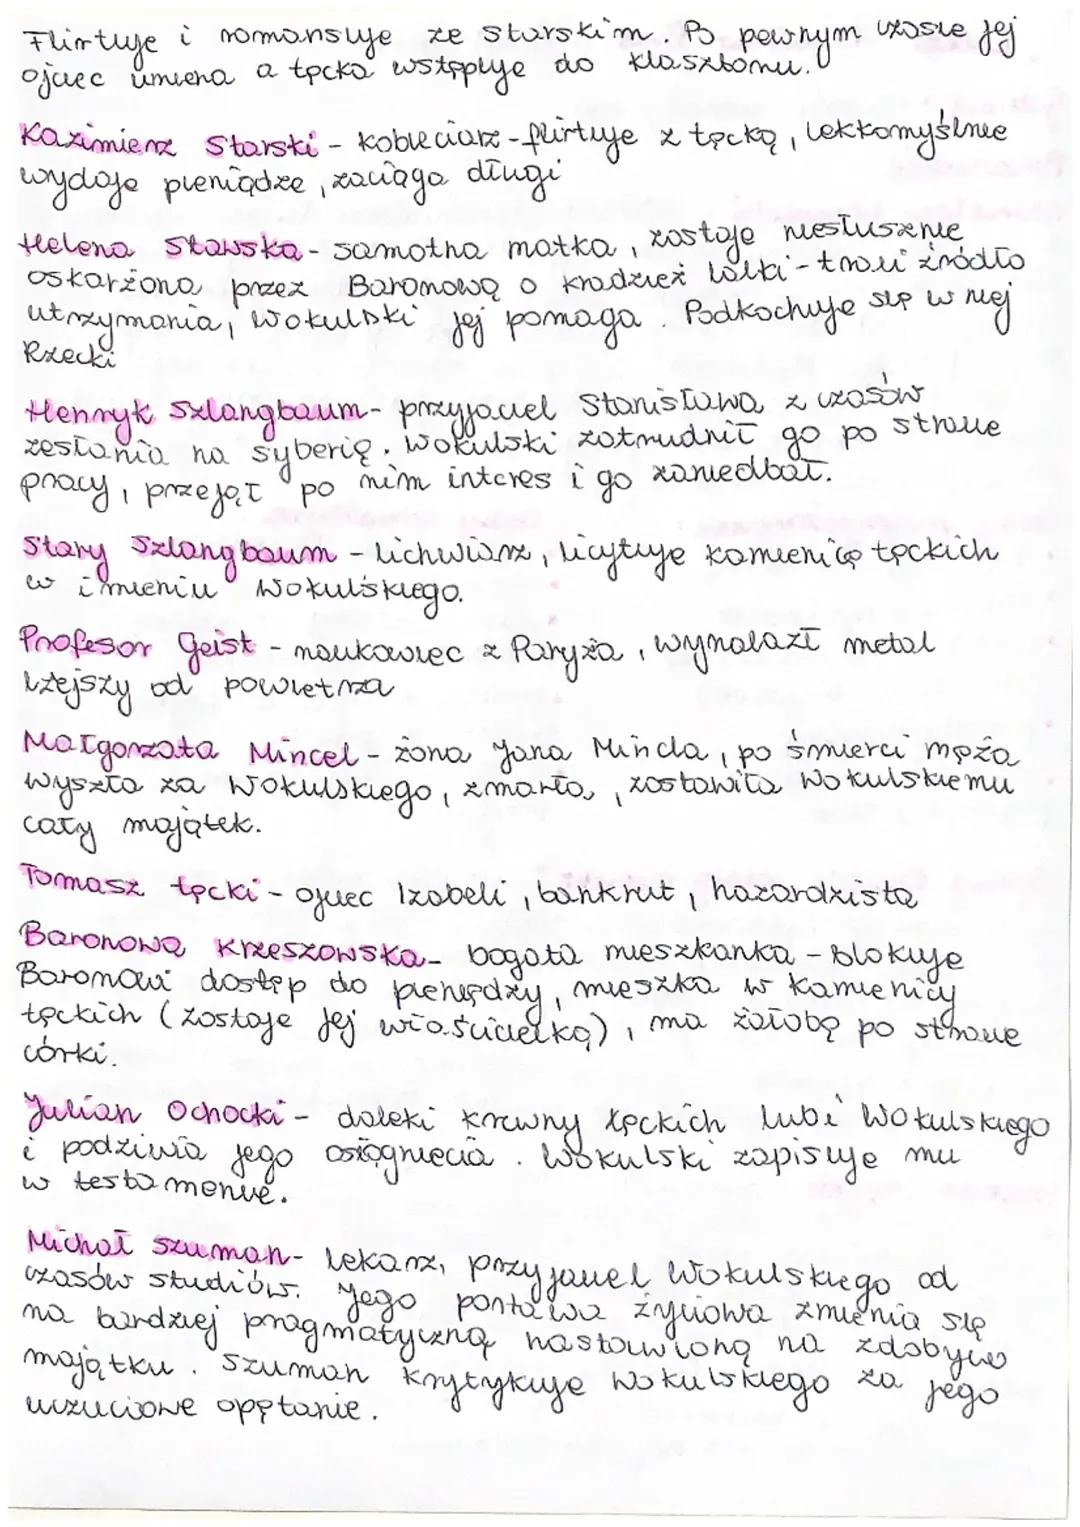 Flirtuje i romansuje ze starskim. Po pewnym czasie jej
ojciec umiera a Łęcka wstępuje do klasztoru.
Kazimierz Starski - kobieciarz - flirtuje z Łęcką, lekkomyślnie
wydaje pieniądze, zaciąga długi
Helena Stawska - samotna matka, zostaje niesłusznie
oskarżona przez Baronową o kradzież lalki - traci źródło
utrzymania, Wokulski jej pomaga. Podkochuje się w niej
Rzecki
Henryk Szlangbaum - przyjaciel Stanisława z czasów
zesłania na syberię. Wokulski zatrudnił go po stracie
pracy, przejął po nim interes i go zaniedbał.
Stary Szlangbaum - lichwiarz, licytuje kamienicę Łęckich
w imieniu Wokulskiego.
Profesor Geist - naukowiec z Paryża, wynalazł metal
lżejszy od powietrza
Małgorzata Mincel - żona Jana Mincla, po śmierci męża
wyszła za Wokulskiego, zmarła, zostawiła Wokulskiemu
cały majątek.
Tomasz Łęcki - ojciec Izabeli, bankrut, hazardzista
Baronowa Krzeszowska - bogata mieszkanka - blokuje
Baronowi dostęp do pieniędzy, mieszka w kamienicy
Łęckich (zostaje jej właścicielką), ma żałobę po stracie
córki.
Julian Ochocki - daleki krewny Łęckich lubi Wokulskiego
i podziwia jego osiągniecia. Wokulski zapisuje mu
w testamencie.
Michał Szuman - lekarz, przyjaciel Wokulskiego od
czasów studiów. Jego postawa życiowa zmienia się
na bardziej pragmatyczną nastawioną na zdobycie
majątku. Szuman krytykuje Wokulskiego za jego
uczuciowe opętanie.